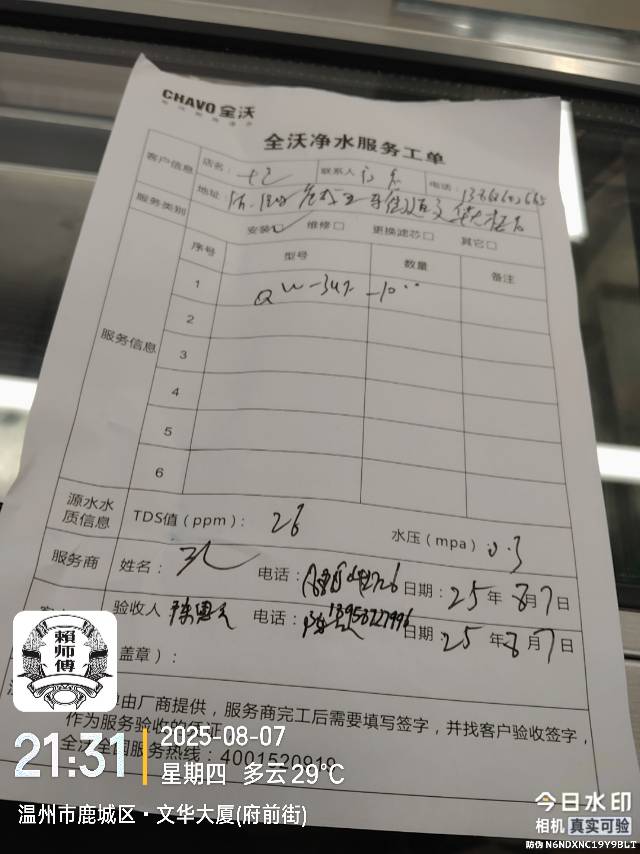 CHAVO 全沃
全沃净水服务工单
客户信息 店名: 联系人 电话:
地址
服务类别 安装 维修□ 更换滤芯□ 其它□
服务信息 序号 型号 数量 备注
1
2
3
4
5
6
源水水质信息 TDS值(ppm): 26 水压(mpa) 0.3
服务商 姓名: 电话: 日期: 25年8月7日
验收人 电话: 日期: 25年8月7日
盖章):
单由厂商提供,服务商完工后需要填写签字,并找客户验收签字,
作为服务验收的凭证
全沃全国服务热线: 4001520919
賴師傅
21:31
2025-08-07
星期四 多云 29℃
温州市鹿城区·文华大厦(府前街)
今日水印
相机 真实可验
防伪 N6NDXNC19Y9BLT